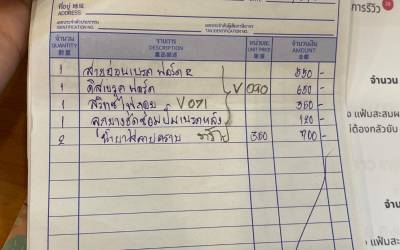 ที่อยู่ 地址
ADDRESS
เลขประจำตัวประชาชน
IDENTIFICATION NO.
เลขประจำตัวผู้เสียภาษีอากร
TAX IDENTIFICATION NO.
จำนวน รายการ หน่วยละ จำนวนเงิน
QUANTITY DESCRIPTION UNIT PRICE AMOUNT
數量 貨品說明 單價 金額
1 สายอ่อนเบรค 550 -
1 ดิสเบรค ฟอร์ด V 090 650 -
1 สวิทช์ไฟถอย V 071 350 -
1 ลูกยางชุดซ่อมปั๊มเบรคหลัง 120 -
2 น้ำยาล้างคราบ 350 700 -
การรีวิว
จำนวน
แฟ้มสะสมผ
ต้องกลัวขับ
จำน
แฟ้มสะ